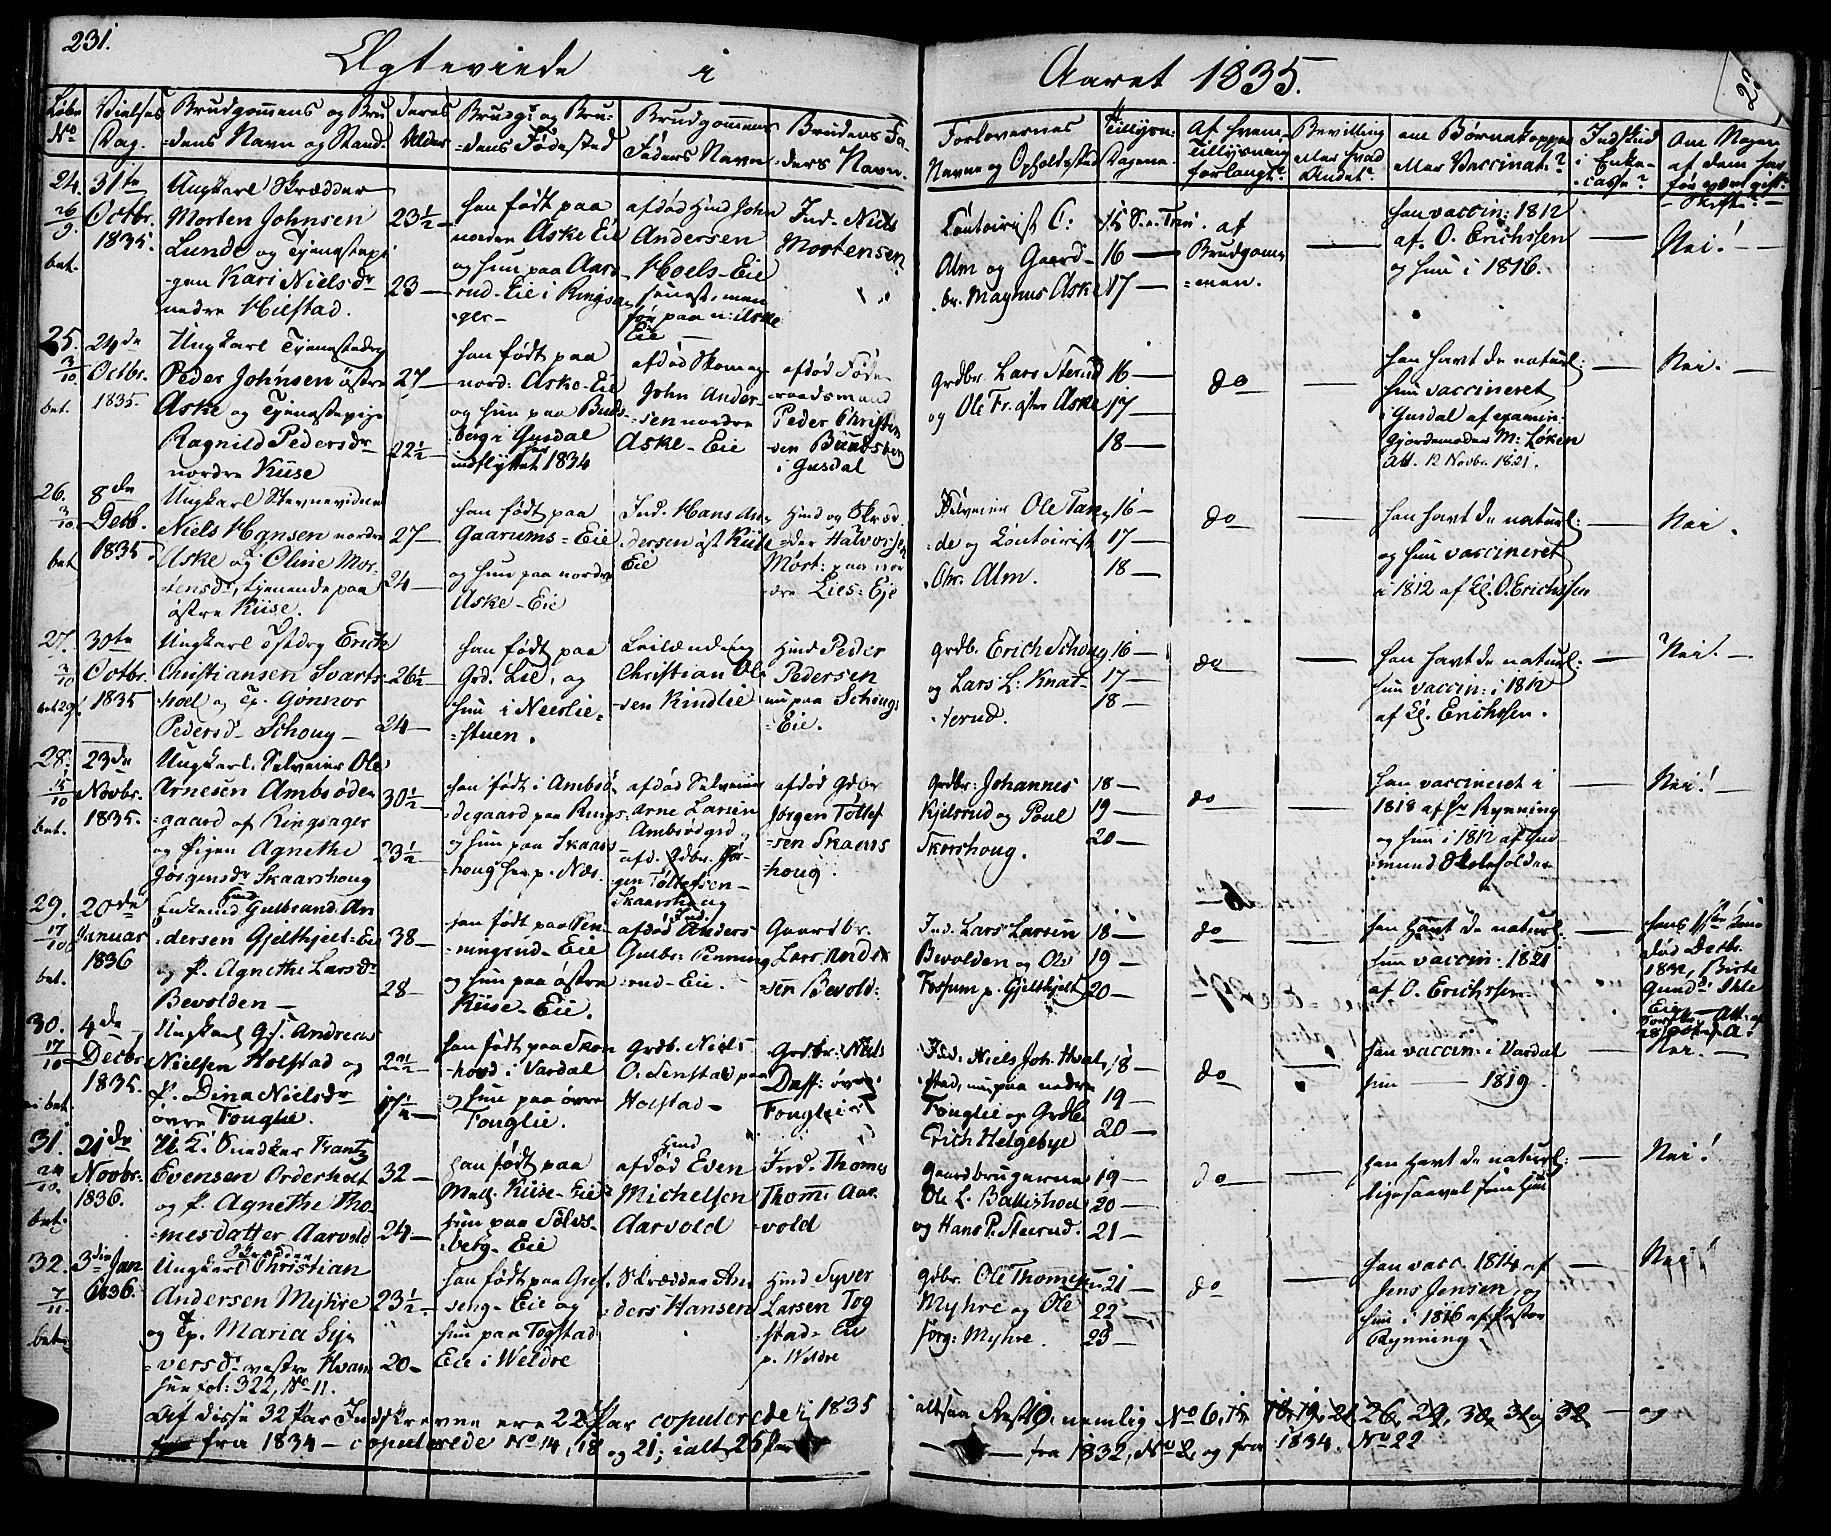 231.
Ægteviede i Aaret 1835.
Løbe No
Vielses Dag.
Brudgommens og Brudens Navn og Stand.
deres Alder
Brudg: og Brudens Fødested
Brudgommens Faders Navn
Brudens Faders Navn.
Forlovernes Navne og Opholdssted
Tillysn: Dagene.
Af hvem Tillysning forlangt.
Bevilling eller hvad Andet.
om Børnekopper eller Vaccinat:?
Indskud i Enkecasse?
Om Nogen af dem har før været gift. Skifte?
24.
26/9
bet.
31te
Octbr.
1835.
Ungkarl Skrædder
Morten Johnsen
Lunde og Tjenestepi
gen Kari Nielsdr
nedre Hielstad.
23½
23
han født paa
nordre Aske Eie
og hun paa Aas
rud-Eie i Ringsa
ger
afdød Huusmd John
Andersen
Hoels-Eie
Ind. Niels
Mortensen
Contoirist C:
Alm og Gaard
br. Magnus Aske
15 S. e. Trin.
16
17
af
Brudgom
men.
han vaccin: 1812
af O. Erichssen
og hun i 1816.
Nei!
25.
3/10
bet.
24de
Octbr.
1835.
Ungkarl Tjenestedrg
Peder Johnsen østre
Aske og Tjenestepige
Ragnild Pedersdr
nordre Kiise
27
22½
han født paa
nord: Aske-Eie
og hun paa Buds
berg i Gusdal
indflyttet 1834
afdød Skomag
John Ander
sen nordre
Aske-Eie
afdød Føde
raadsmand
Peder Christen
sen Budsberg
i Gusdal
Grdbr. Lars Sterud
og Ole Fr. østre Aske
16
17
18
do
han havt de naturl:
hun vaccineret
i Gusdal af examin.
Gjordemoder M: Løken
Att. 12 Novbr. 1821.
Nei.
26.
3/10
bet
8de
Decb.
1835
Ungkarl Stevnevidne
Niels Hansen nordre
Aske og Oline Mor
tensdr, tjenende paa
østre Kiise.
27
24
han født paa
Gaarums-Eie
og hun paa nordre
Aske-Eie
Ind. Hans An
dersen øst Kiise
Eie
Huusmd og Skræd
der Halvorsen
Mort: paa nor
dre Lies-Eje
Selveier Ole Tan
de og Contoirist
Chr. Alm.
16
17
18
do
han havt de naturl:
og hun vaccineret
i 1812 af Kl. O. Erichssen
Nei.
27.
3/10
30te
Octbr.
1835
Ungkarl Tjstdrg Erich
Christiansen Svarts
hoel og Tp. Gønnor
Pedersd. Schoug
26½
24
han født paa
Grd. Lie, og
hun i Neerlie
stuen.
Leilænding
Christian Ol
sen Rindlie
Huusmd Peder
Pedersen
nu paa Schougs
Eie.
Grdb. Erich Schoug
og Lars L: Knat
terud.
16
17
18
do
han havt de naturl:
hun vaccin: i 1812
af Kl. Erichssen.
Nei!
28.
15/10
bet.
23de
Novbr.
1835.
Ungkarl. Selveier Ole
Arnesen Ambsøde
gaard af Ringsager
og Pigen Agnethe
Jørgensdr Skaarshoug
30½
23½
han født i Ambsø
degaard paa Rings:
og hun paa Skaars
houg her p. Næs.
afdød Selveier
Arne Larsen
Ambsødgrd
afd. Grdbr. Jør
gen Tollefsen
Skaarshoug
afdød Gdbr
Jørgen Tollef
sen Skaars
houg.
Grdbr: Johannes
Kjelsrud og Poul
Skarshoug.
18
19
20
do
han vaccineret i
1818 af Hr Rynning
og hun i 1812 af Gud
mund Skoleholder
Nei!
29.
17/10
bet.
20de
Januar
1836
Enkemd Gulbrand An
dersen Gjelthjelt-Eie
og P. Agnethe Larsdr
Bevolden
38
28
han født paa Pen
ningrud-Eie
og hun paa østre
Kiise-Eie.
afdød Anders
Gulbr: Penning
rud-Eie.
Gaardbr.
Lars Ander
sen Bevold:
Ind. Lars Larsen
Bevolden og Ole
Fossum p. Gjelthjelt
18
19
20
do
han havt de naturl:
hun vaccin: 1821
af O. Erichssen
hans 1ste Kone
død Decbr.
1832, Birte
Gundr:
30.
17/10
bet.
4de
Decbr.
1835.
Ungkarl Gs. Andreas
Nielsen Holstad og
P. Dina Nielsdr
øvre Fouglie.
22½
17½
han født paa Skon
hovd i Vardal
og hun paa øvre
Fouglie.
Grdb. Niels
O. Senstad paa
Holstad
Grdbr: Niels
Daff: øvre
Fouglie
Ind. Niels Joh. Hval
stad, nu paa nedre
Fouglie og Grdb.
Erich Helgebye
18
19
20
do
han vaccin: i Vardal
hun — 1819.
Nei.
31.
24/10
bet.
21de
Novbr.
1836.
U. K. Snedker Frantz
Evensen Orderholt
og P. Agnethe Tho
mesdatter Aarvold
32
24
han født paa
Mell. Kiise-Eie
hun paa Sølvs
berg-Eie
Huusmd
afdød Even
Michelsen
Aarvold
Ind. Thomes
Thom: Aar
vold
Gaardbrugerne
Ole L. Battishoel
og Hans P. Steerud.
19
20
21
do
han havt de naturl:
ligesaavel som hun
Nei!
32.
7/11
bet
3die Jan
1836.
Ungkarl Christian
Andersen Myhre
og Tp. Maria Sy
versdr vestre Hvam
hun fol: 322, No 11.
23½
20
han født paa Gres
seng-Eie og
hun paa Togstad
Eie i Weldre
Skrædder An
ders Hansen
Huusmd Syver
Larsen Tog
stad-Eie
p. Weldre
Gdbr. Ole Thomesen
Myhre og Ole
Jørg: Myhre.
21
22
23
do
han vacc. 1814 af
Jens Jensen, og
hun i 1816 af Pastor
Rynning
Nei!
Af disse 32 Par Indskrevne ere 22 Par copulerede i 1835 altsaa Rest 9, nemlig No 6, 15, 18, 19, 21, 26, 29, 30, 31 og 32 — og
fra 1834 — copulerede No 14, 18 og 21; ialt 25 Par — fra 1832, No 2, og fra 1834. No 22